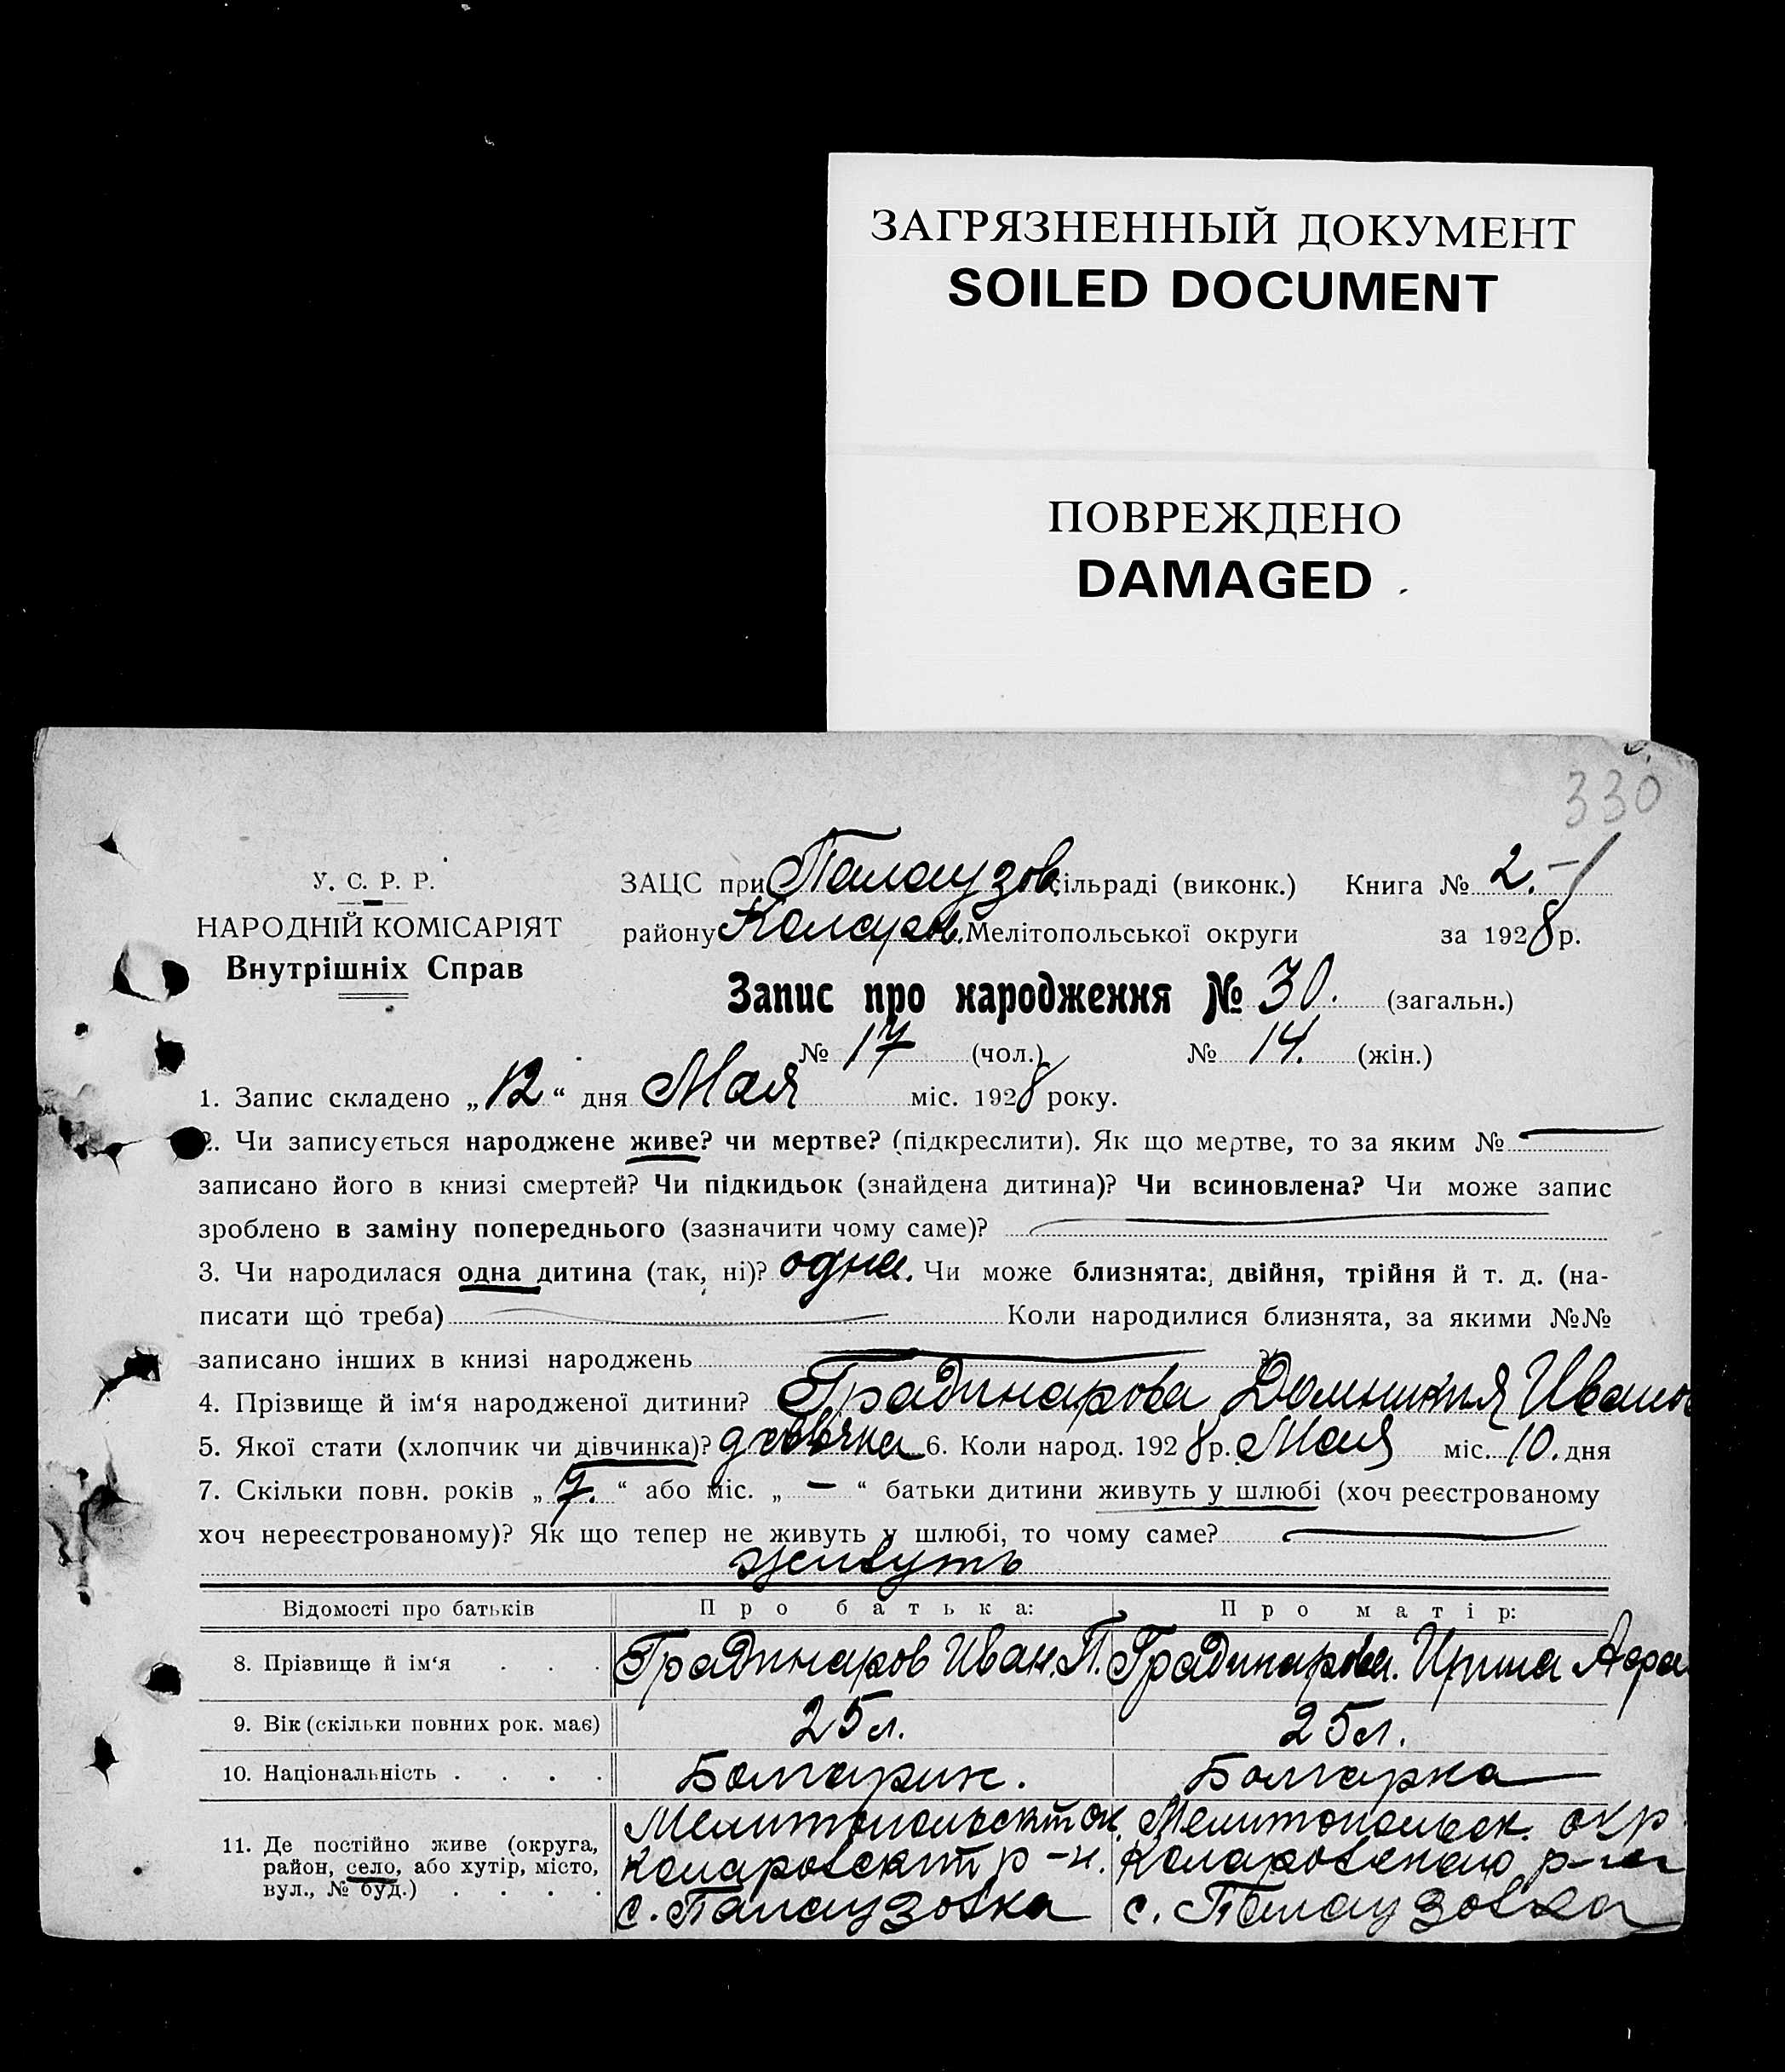 ЗАГРЯЗНЕННЫЙ ДОКУМЕНТ
SOILED DOCUMENT
ПОВРЕЖДЕНО
DAMAGED
330
У. С. Р. Р.
НАРОДНІЙ КОМІСАРІЯТ
Внутрішніх Справ
ЗАЦС при Палаузов. сільраді (виконк.) Книга № 2.-1
району Коларов. Мелітопольської округи за 1928 р.
Запис про народження № 30. (загальн.)
№ 17 (чол.) № 14. (жін.)
1. Запис складено „12“ дня Мая міс. 1928 року.
2. Чи записується народжене живе? чи мертве? (підкреслити). Як що мертве, то за яким № —
записано його в книзі смертей? Чи підкидьок (знайдена дитина)? Чи всиновлена? Чи може запис
зроблено в заміну попереднього (зазначити чому саме)? —
3. Чи народилася одна дитина (так, ні)? одна. Чи може близнята:, двійня, трійня й т. д. (на-
писати що треба) — Коли народилися близнята, за якими №№
записано інших в книзі народжень —
4. Прізвище й ім‘я народженої дитини? Градинарова Домникия Иванов
5. Якої стати (хлопчик чи дівчинка)? 6. Коли народ. 1928 р. Мая міс. 10. дня
7. Скільки повн. років „7.“ або міс. „—“ батьки дитини живуть у шлюбі (хоч реєстрованому
хоч нереєстрованому)? Як що тепер не живуть у шлюбі, то чому саме? —
живуть
Відомості про батьків Про батька: Про матір:
8. Прізвище й ім‘я . . . Градинаров Иван. П. Градинарова. Ирина Афа
9. Вік (скільки повних рок. має) 25 л. 25 л.
10. Національність . . . . Болгарин. Болгарка
11. Де постійно живе (округа, район, село, або хутір, місто, вул., № буд.) . . . .
Мелитопольской ок. Мелитопольск. окр
Коларовский р-н. Коларовского р-на
с. Палаузовка с. Палаузовка